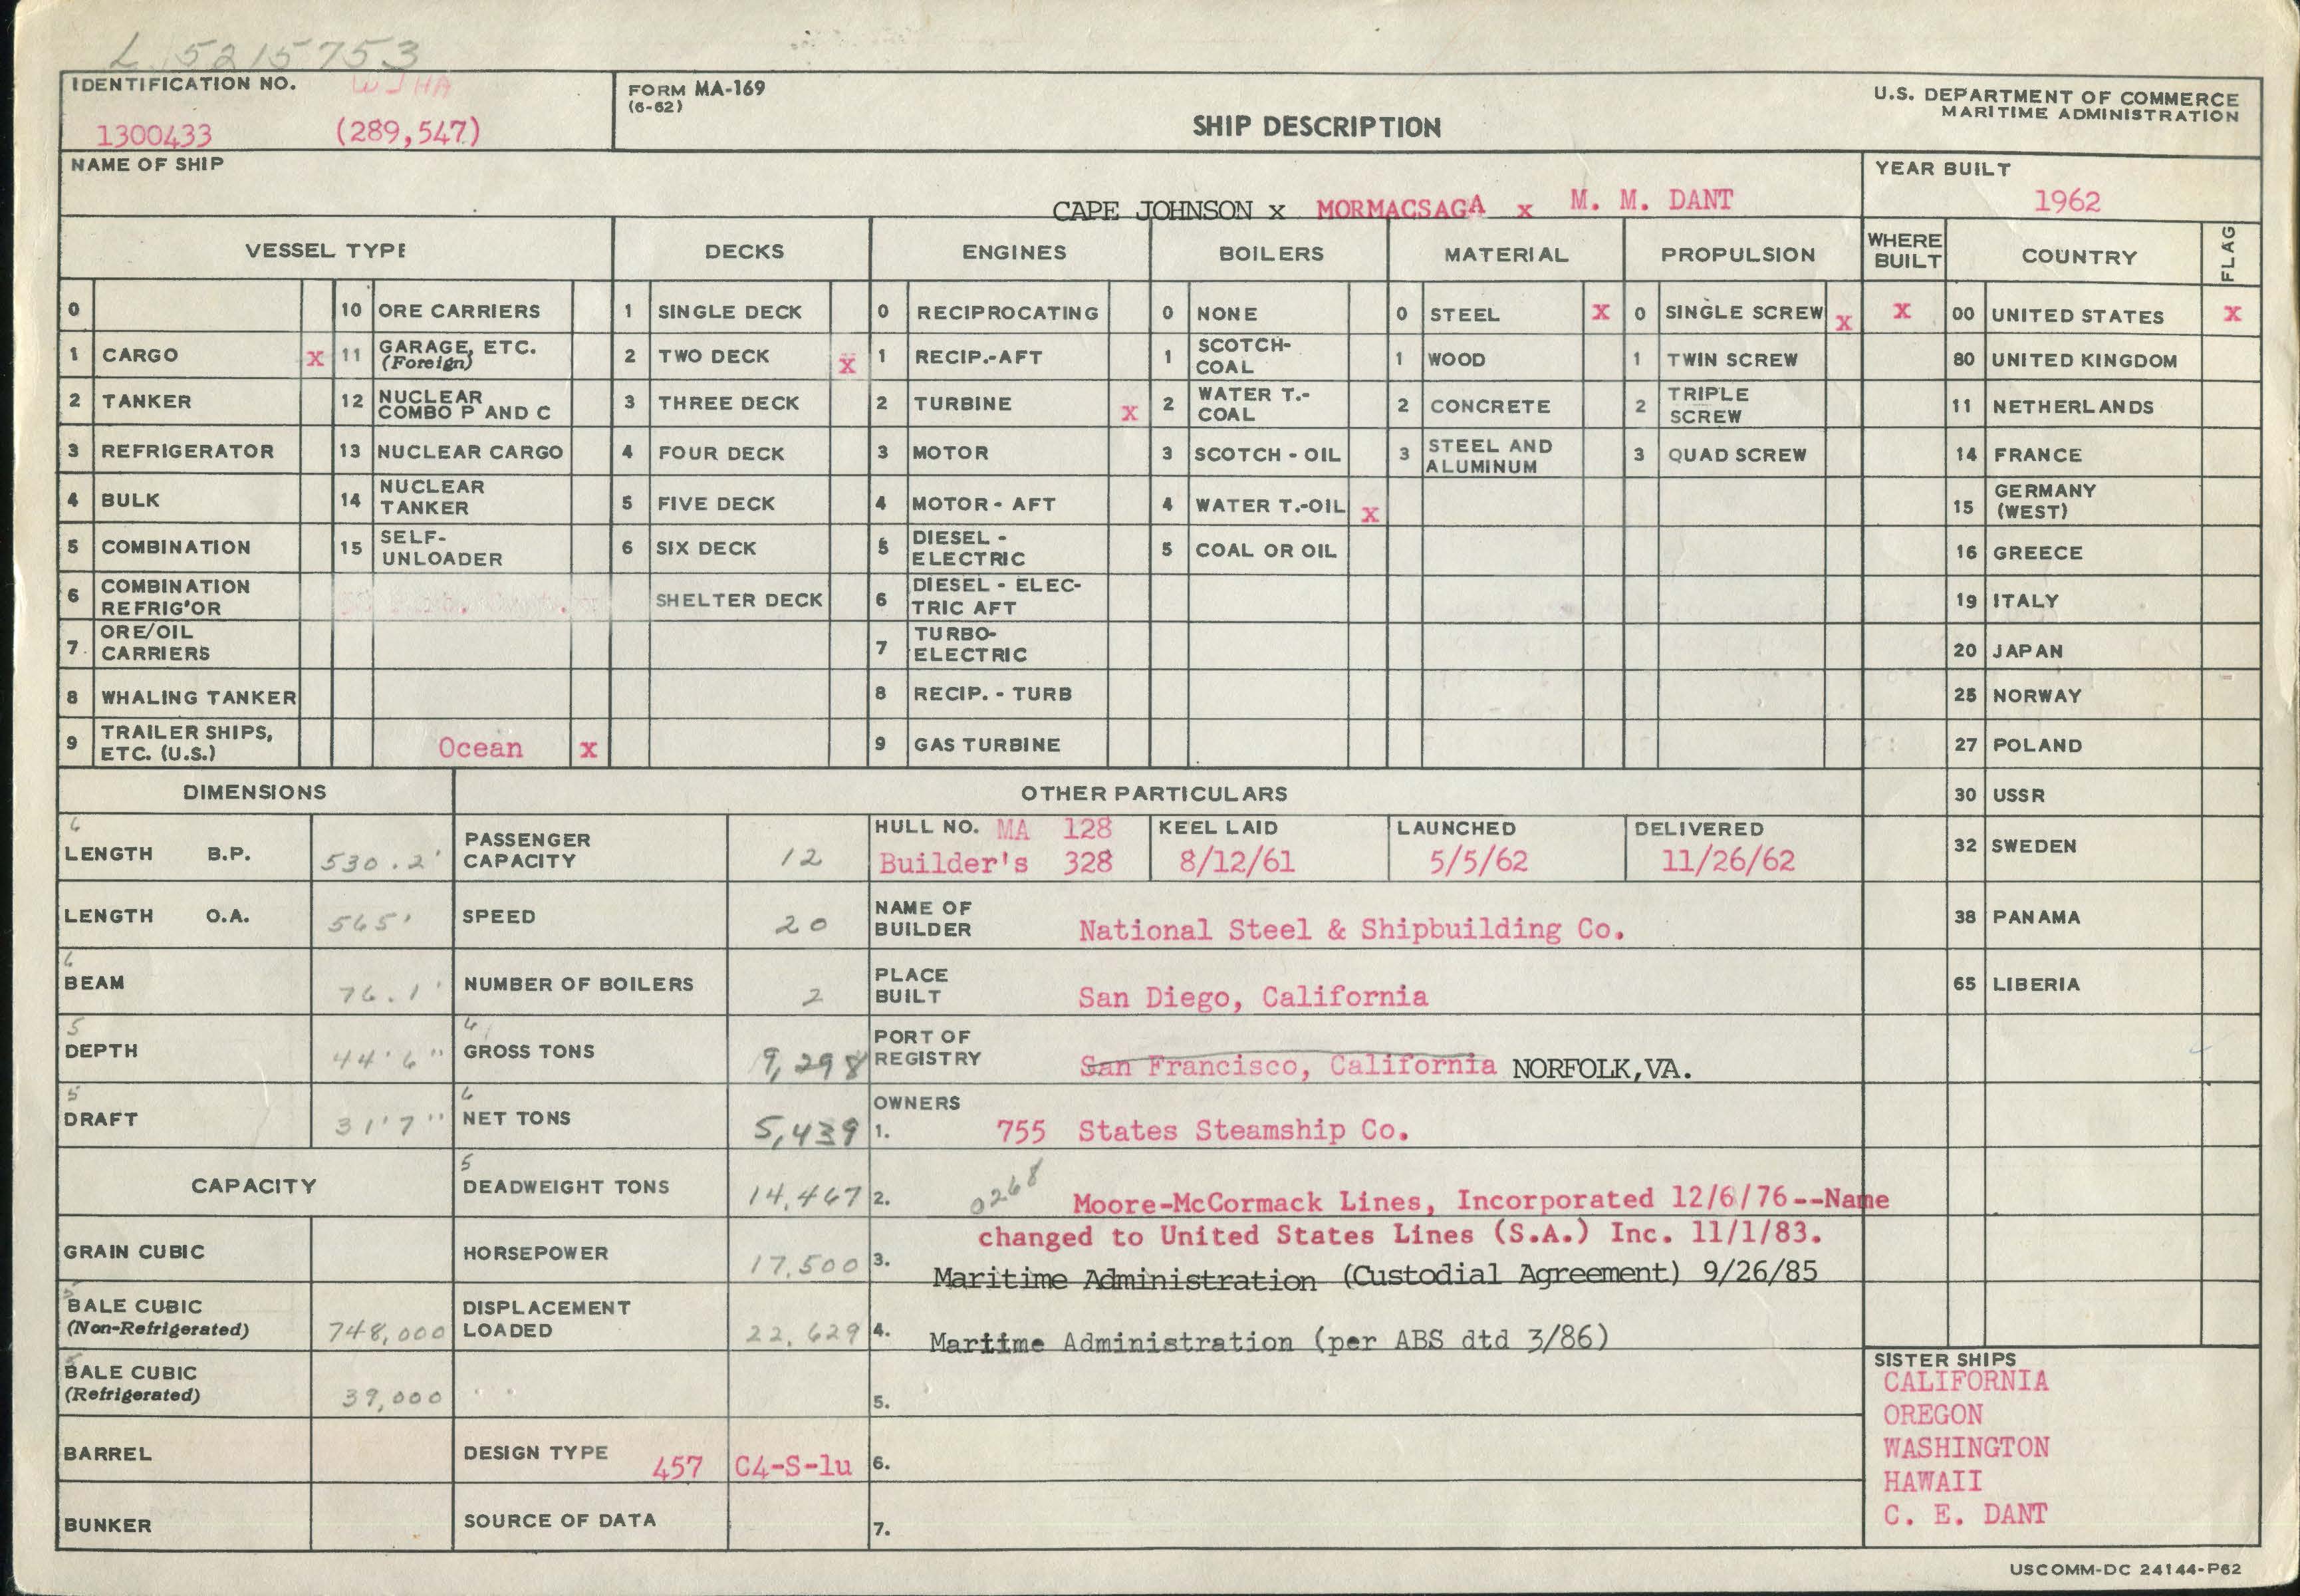 L 5215753
IDENTIFICATION NO. WJHA
1300433 (289,547)
FORM MA-169
(6-62)
SHIP DESCRIPTION
U.S. DEPARTMENT OF COMMERCE
MARITIME ADMINISTRATION
NAME OF SHIP
CAPE JOHNSON x MORMACSAGA x M. M. DANT
YEAR BUILT
1962
VESSEL TYPE DECKS ENGINES BOILERS MATERIAL PROPULSION WHERE BUILT COUNTRY FLAG
0 10 ORE CARRIERS 1 SINGLE DECK 0 RECIPROCATING 0 NONE 0 STEEL x 0 SINGLE SCREW x x 00 UNITED STATES x
1 CARGO x 11 GARAGE, ETC. (Foreign) 2 TWO DECK x 1 RECIP.-AFT 1 SCOTCH-COAL 1 WOOD 1 TWIN SCREW 80 UNITED KINGDOM
2 TANKER 12 NUCLEAR COMBO P AND C 3 THREE DECK 2 TURBINE x 2 WATER T.-COAL 2 CONCRETE 2 TRIPLE SCREW 11 NETHERLANDS
3 REFRIGERATOR 13 NUCLEAR CARGO 4 FOUR DECK 3 MOTOR 3 SCOTCH - OIL 3 STEEL AND ALUMINUM 3 QUAD SCREW 14 FRANCE
4 BULK 14 NUCLEAR TANKER 5 FIVE DECK 4 MOTOR - AFT 4 WATER T.-OIL x 15 GERMANY (WEST)
5 COMBINATION 15 SELF-UNLOADER 6 SIX DECK 5 DIESEL - ELECTRIC 5 COAL OR OIL 16 GREECE
6 COMBINATION REFRIG'OR SHELTER DECK 6 DIESEL - ELEC-TRIC AFT 19 ITALY
7. ORE/OIL CARRIERS 7 TURBO-ELECTRIC 20 JAPAN
8 WHALING TANKER 8 RECIP. - TURB 25 NORWAY
9 TRAILER SHIPS, ETC. (U.S.) Ocean x 9 GAS TURBINE 27 POLAND
DIMENSIONS OTHER PARTICULARS 30 USSR
6
LENGTH B.P. 530.2' PASSENGER CAPACITY 12 HULL NO. MA 128 Builder's 328 KEEL LAID 8/12/61 LAUNCHED 5/5/62 DELIVERED 11/26/62 32 SWEDEN
LENGTH O.A. 565' SPEED 20 NAME OF BUILDER National Steel & Shipbuilding Co. 38 PANAMA
6
BEAM 76.1' NUMBER OF BOILERS 2 PLACE BUILT San Diego, California 65 LIBERIA
5 6
DEPTH 44'6" GROSS TONS 9,298 PORT OF REGISTRY San Francisco, California NORFOLK,VA.
5 6
DRAFT 31'7" NET TONS 5,439 OWNERS
1. 755 States Steamship Co.
5
CAPACITY DEADWEIGHT TONS 14,467 2. 0268 Moore-McCormack Lines, Incorporated 12/6/76--Name
changed to United States Lines (S.A.) Inc. 11/1/83.
GRAIN CUBIC HORSEPOWER 17,500 3. Maritime Administration (Custodial Agreement) 9/26/85
5
BALE CUBIC (Non-Refrigerated) 748,000 DISPLACEMENT LOADED 22,629 4. Martime Administration (per ABS dtd 3/86)
5
BALE CUBIC (Refrigerated) 39,000 5.
BARREL DESIGN TYPE 457 C4-S-1u 6.
BUNKER SOURCE OF DATA 7.
SISTER SHIPS
CALIFORNIA
OREGON
WASHINGTON
HAWAII
C. E. DANT
USCOMM-DC 24144-P62